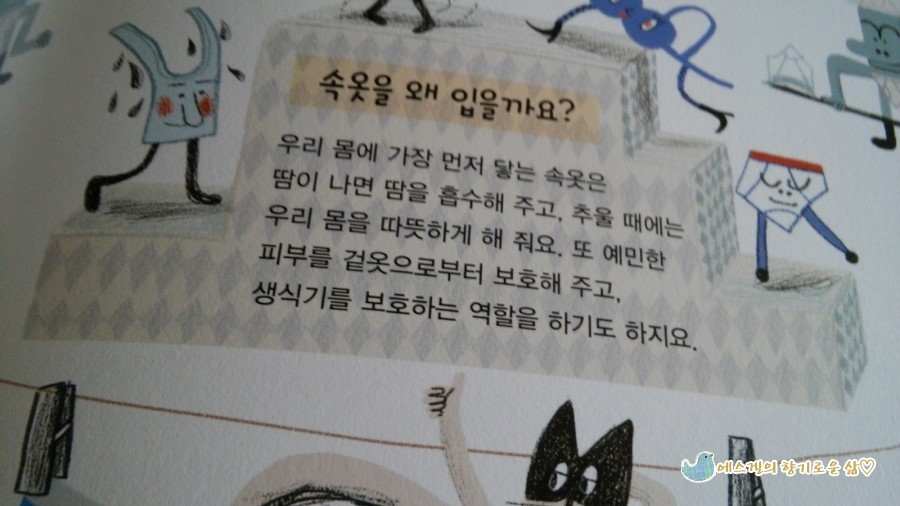 속옷을 왜 입을까요?
우리 몸에 가장 먼저 닿는 속옷은
땀이 나면 땀을 흡수해 주고, 추울 때에는
우리 몸을 따뜻하게 해 줘요. 또 예민한
피부를 겉옷으로부터 보호해 주고,
생식기를 보호하는 역할을 하기도 하지요.
에스겔의 향기로운 삶♡